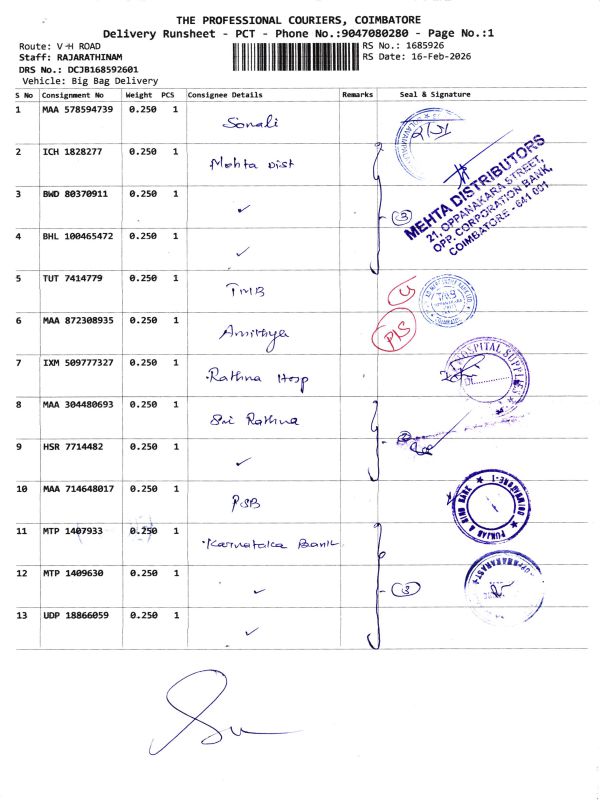 THE PROFESSIONAL COURIERS, COIMBATORE
Delivery Runsheet - PCT - Phone No.:9047080280 - Page No.:1
Route: V-H ROAD
Staff: RAJARATHINAM
DRS No.: DCJB168592601
Vehicle: Big Bag Delivery
RS No.: 1685926
RS Date: 16-Feb-2026
S No Consignment No Weight PCS Consignee Details Remarks Seal & Signature
1 MAA 578594739 0.250 1 Sonali
2 ICH 1828277 0.250 1 Mehta Dist
3 BWD 80370911 0.250 1 ✓
4 BHL 100465472 0.250 1 ✓
3
MEHTA DISTRIBUTORS
21, OPPANAKARA STREET,
OPP. CORPORATION BANK,
COIMBATORE - 641 001
5 TUT 7414779 0.250 1 TMB
6 MAA 872308935 0.250 1 Amithya
7 IXM 509777327 0.250 1 Rathna Hosp
HOSPITAL SUPPLIES
8 MAA 304480693 0.250 1 Sri Rathna
9 HSR 7714482 0.250 1 ✓
10 MAA 714648017 0.250 1 PSB
PUNJAB & SIND BANK
11 MTP 1407933 0.250 1 Karnataka Bank
12 MTP 1409630 0.250 1 ✓
3
13 UDP 18866059 0.250 1 ✓